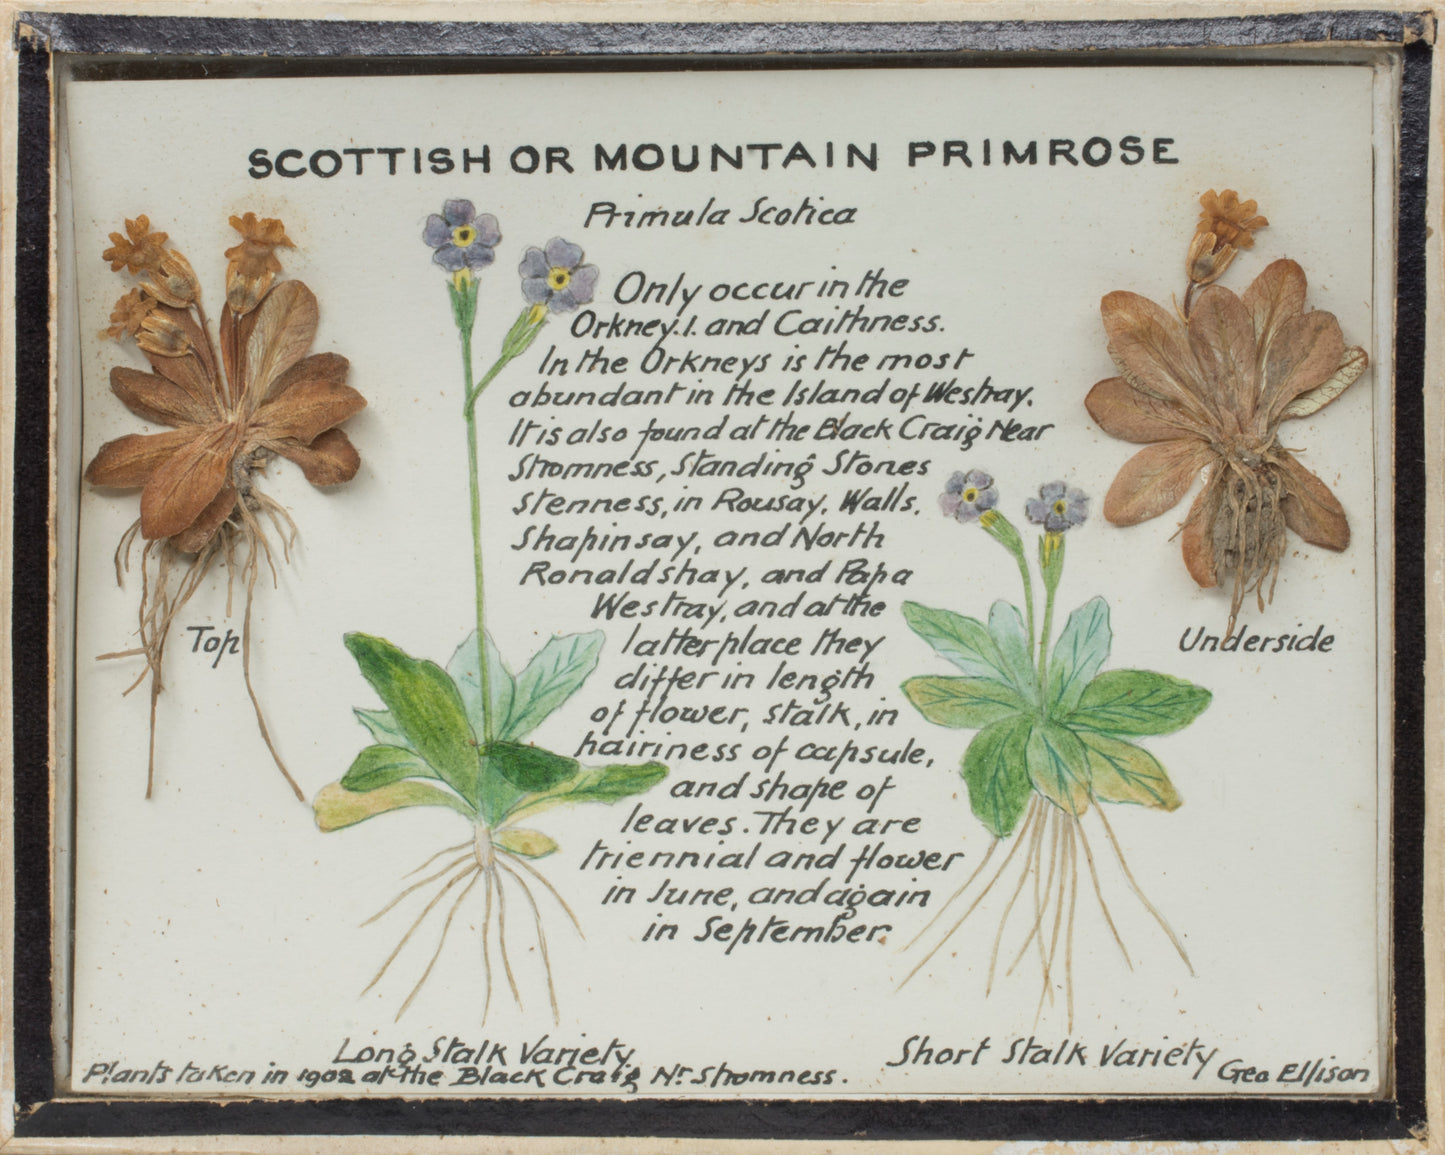 SCOTTISH OR MOUNTAIN PRIMROSE
Primula Scotica
Only occur in the
Orkney.I. and Caithness.
In the Orkneys is the most
abundant in the Island of Westray.
It is also found at the Black Craig Near
Stromness, Standing Stones
Stenness, in Rousay, Walls,
Shapinsay, and North
Ronaldshay, and Papa
Westray, and at the
latter place they
differ in length
of flower, stalk, in
hairiness of capsule,
and shape of
leaves. They are
triennial and flower
in June, and again
in September.
Top
Underside
Long Stalk Variety
Short Stalk Variety
Plants taken in 1902 at the Black Craig Nr Stromness.
Geo Ellison